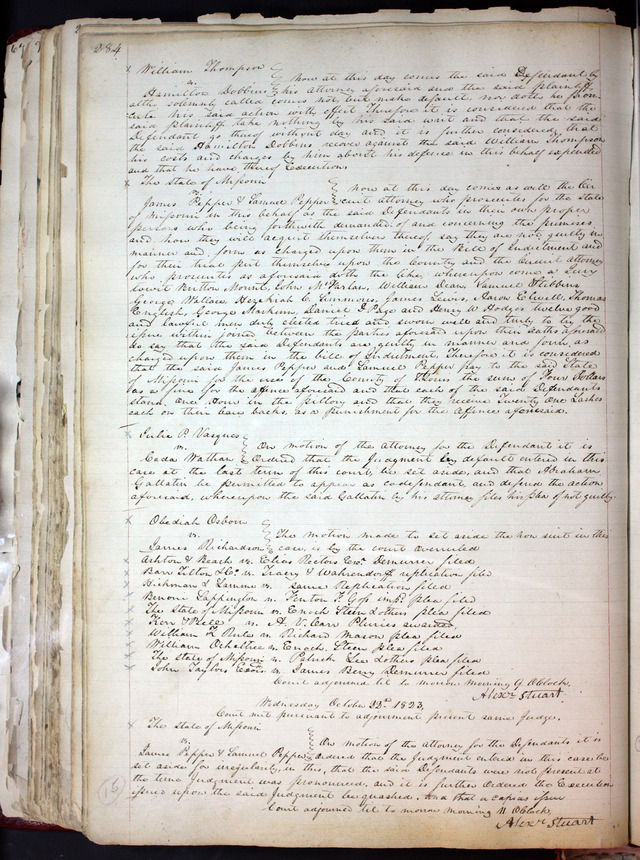 284
William Thompson
vs.
Hamilton Dobbins
Now at this day comes the said Defendant by
his attorney aforesaid and the said plaintiff
altho solemnly called comes not but makes default, nor doth he prose
cute his said action with effect Therefore it is considered that the
said plaintiff take nothing by his said writ and that the said
Defendant go thereof without day and it is further considered that
the said Hamilton Dobbins recover against the said William Thompson
his costs and charges by him about his defence in this behalf expended
and that he have thereof Execution.
The State of Missouri
vs.
James Pepper & Samuel Pepper
Now at this day comes as well the Cir
cuit attorney who prosecutes for the state
of Missouri in this behalf as the said Defendants in their own proper
persons who being forthwith demanded of and concerning the premises
and how they will acquit themselves thereof, say they are not guilty in
manner and form as charged upon them in the Bill of Indictment and
for their trial put themselves upon the Country and the Circuit attorney
who prosecutes as aforesaid doth the like, whereupon come a Jury
towit Britton Mount, John McFarlan, William Dean, Samuel Stebbins
George Wallace Hezekiah C. Simmons, James Lewis, Aaron Elwell, Thomas
English, George Markem, Daniel D Page and Henry W Hodges twelve good
and lawful men duly elected tried and sworn well and truly to try the
issue within joined between the parties aforesaid upon their oaths aforesaid
do say that the said Defendants are guilty in manner and form, as
charged upon them in the bill of Indictment, Therefore it is considered
that the said James Pepper and Samuel Pepper pay to the said State
of Missouri for the use of the County of St Louis the sum of Four Dollars
as a fine for the offence aforesaid and that each of the said Defendants
stand One Hour in the pillory and that they receive Twenty One Lashes
each on their bare backs, as a punishment for the offence aforesaid.
Julie P. Vasques
vs.
Cada Wathan
On motion of the attorney for the Defendant it is
Ordered that the Judgment by default entered in this
case at the last term of this court, be set aside, and that Abraham
Gallatin be permitted to appear as codefendant, and defend the action
aforesaid, whereupon the said Gallatin by his attorney files his plea of not guilty.
Obediah Osborn
vs.
James Richardson
The motion made to set aside the non suit in this
case, is by the court overruled
Ashton & Beach vs. Elias Rectors Exr. Demurrer filed
Barr Tilton & Co. vs. Tracy & Wahrendorff replication filed
Hickman & Lamme vs. same Replication filed
Benoni Sappington vs. Fenton F. Goss impl. plea filed
The State of Missouri vs. Enoch Steen & others plea filed
Kerr & Bell vs. A. V. Carr Pluries awarded
William L Rule vs. Richard Mason plea filed
William Ochiltree vs. Enoch Steen plea filed
The State of Missouri vs. Patrick Lee & others plea filed
John Taylors Exors vs. James Berry Demurrer filed
Court adjourned til to morrow morning 9 Oclock.
Alexr Stuart
Wednesday October 22d 1823,
Court met pursuant to adjournment present same Judge.
The State of Missouri
vs.
James Pepper & Samuel Pepper
On motion of the attorney for the Defendants it is
ordered that the Judgment entered in this case be
set aside for irregularity in this, that the said Defendants were not present at
the time Judgment was pronounced, and it is further ordered the Execution
issued upon the said Judgment be quashed. And that a capias issue
Court adjourned til to morrow morning 11 Oclock.
Alexr Stuart
(16)